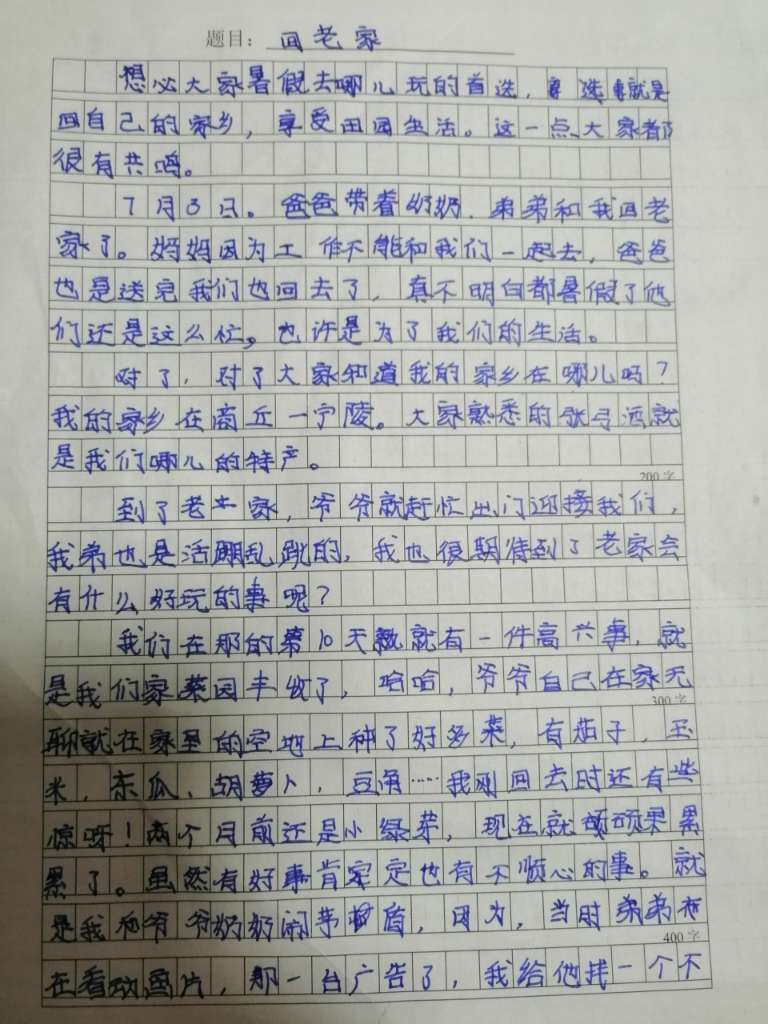 题目：回老家
想必大家暑假去哪儿玩的首选，选就是
回自己的家乡，享受田园生活。这一点、大家都
很有共鸣。
7月3日。爸爸带着奶奶、弟弟和我回老
家了。妈妈因为工作不能和我们一起去，爸爸
也是送完我们也回去了，真不明白都暑假了他
们还是这么忙，也许是为了我们的生活。
对了，对了大家知道我的家乡在哪儿吗？
我的家乡在商丘一宁陵。大家熟悉的张弓酒就
是我们哪儿的特产。
200字
到了老家，爷爷就赶忙出门迎接我们，
我弟也是活蹦乱跳的，我也很期待到了老家会
有什么好玩的事呢？
我们在那的第10天就有一件高兴事，就
是我们家菜园丰收了，哈哈，爷爷自己在家无
300字
聊就在家里的空地上种了好多菜，有茄子，玉
米，东瓜、胡萝卜，豆角……我刚回去时还有些
惊呀！两个月前还是小绿芽，现在就硕硕果累
累了。虽然有好事肯定也有不顺心的事。就
是我和爷爷奶奶闹茅盾，因为，当时弟弟
400字
在看动画片，那一台广告了，我给他找一个不